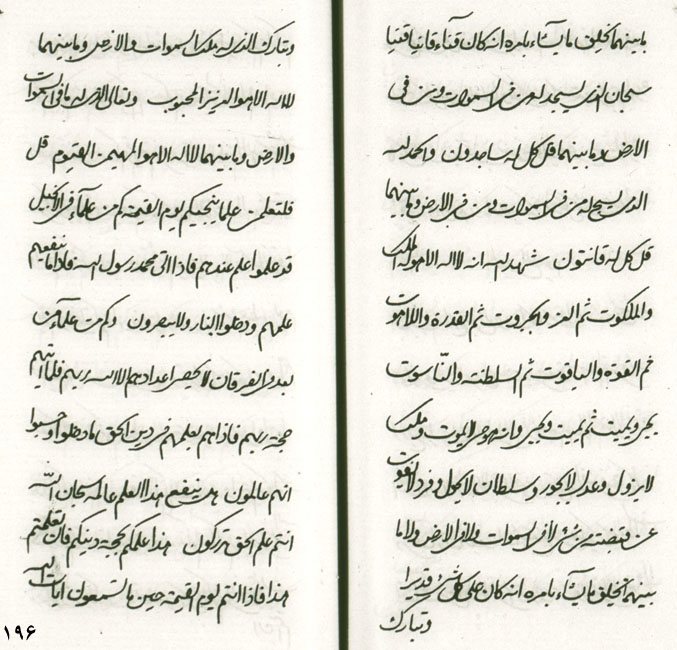 ما بينهما يخلق ما يشاء بامره انه كان قداء قانيا قنيا
سبحان الذى يسجد له من فى السموات و من فى
الارض و ما بينهما قل كل له ساجدون و الحمد لله
الذى يسبح له من فى السموات و من فى الارض و ما بينهما
قل كل له قانتون شهد الله انه لا اله الا هو له الملك
و الملكوت ثم العز و الجبروت ثم القدرة و اللاهوت
ثم القوة و الياقوت ثم السلطنة و الناسوت
يحيى و يميت ثم يميت و يحيى و انه هو حى لا يموت و ملك
لا يزول و عدل لا يجور و سلطان لا يحول و فرد لا يفوت
عن قبضته من شئ لا فى السموات و لا فى الارض و لا ما
بينهما يخلق ما يشاء بامره انه كان على كل شئ قديرا
و تبارك
و تبارك الذى له ملك السموات و الارض و ما بينهما
لا اله الا هو العزيز المحبوب و تعالى الذى له ما فى السموات
و الارض و ما بينهما لا اله الا هو المهيمن القيوم قل
فلتعلمن علما ينجيكم يوم القيمة كم من علماء فى الانجيل
قد علموا علم عندهم فاذا اتى محمد رسول الله فاذا ما ينفعهم
علمهم و دخلوا النار و لا يبصرون و كم من علماء من
بعد فى الفرقان لا يحصى اعدادهم الا الله ربهم فلما اتيهم
حجة ربهم فاذا هم بعلمهم فى دين الحق ما دخلوا و حسبوا
انهم عالمون هل ينفع هذا العلم عالمه سبحان الله
انتم علم الحق تدركون هذا علمكم بحجة دينكم فان تعلمتم
هذا فاذا انتم يوم القيمة حين ما تسمعون ايات الله
۱۹۶